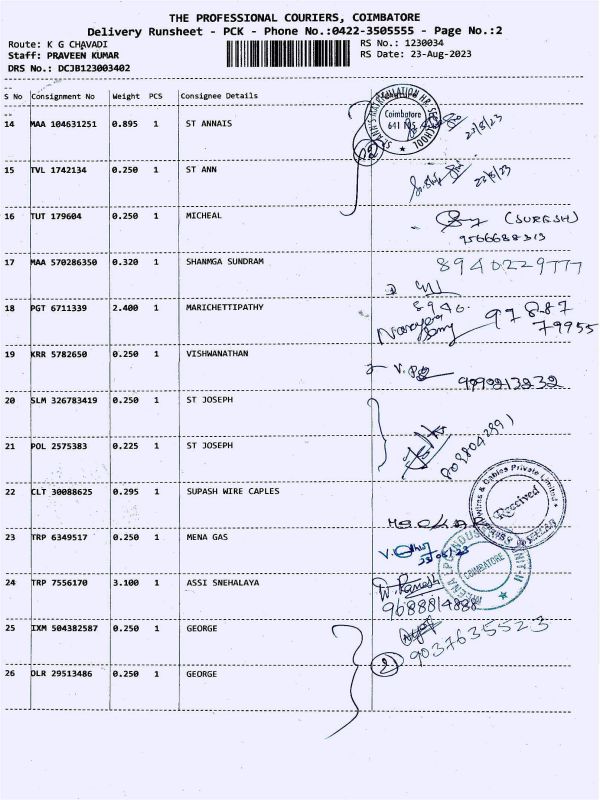 THE PROFESSIONAL COURIERS, COIMBATORE
Delivery Runsheet - PCK - Phone No.:0422-3505555 - Page No.:2
Route: K G CHAVADI RS No.: 1230034
Staff: PRAVEEN KUMAR RS Date: 23-Aug-2023
DRS No.: DCJB123003402
S No Consignment No Weight PCS Consignee Details
14 MAA 104631251 0.895 1 ST ANNAIS
Coimbatore
23/8/23
2
15 TVL 1742134 0.250 1 ST ANN 23/8/23
16 TUT 179604 0.250 1 MICHEAL (SURESH)
9566688313
17 MAA 570286350 0.320 1 SHANMGA SUNDRAM 8940229777
8940.
18 PGT 6711339 2.400 1 MARICHETTIPATHY 97887
79955
19 KRR 5782650 0.250 1 VISHWANATHAN
20 SLM 326783419 0.250 1 ST JOSEPH
21 POL 2575383 0.225 1 ST JOSEPH
22 CLT 30088625 0.295 1 SUPASH WIRE CAPLES
Wires & Cables Private Limited
Received
23 TRP 6349517 0.250 1 MENA GAS
COIMBATORE
24 TRP 7556170 3.100 1 ASSI SNEHALAYA
9688814888
25 IXM 504382587 0.250 1 GEORGE
9037635523
26 DLR 29513486 0.250 1 GEORGE
2